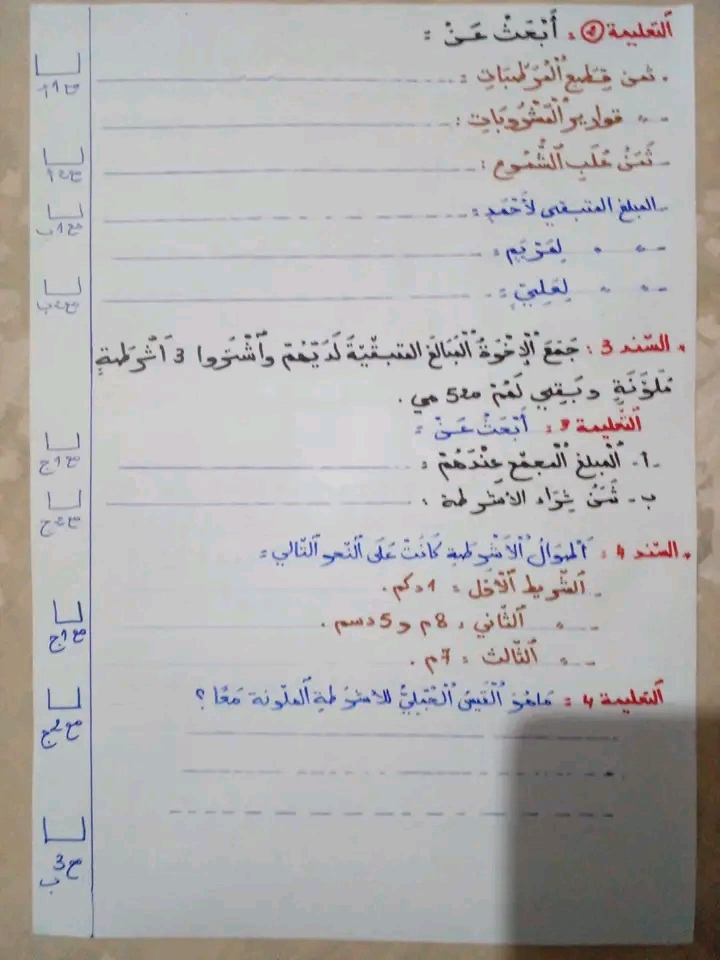 التعليمة 2 : أَبْحَثُ عَنْ :
- ثمن قِطَعِ الْمُرَطِّبَاتِ :
- " قوارير الْمَشْرُوبَاتِ :
- ثَمَنُ عُلَبِ الشُّمُوعِ :
- المبلغ المتبقي لِأَحْمَدٍ :
- " " لِمَرْيَمَ :
- " " لِعَلِيٍّ :
السّند 3 : جَمَعَ الْإِخْوَةُ الْمَبَالِغَ الْمُتَبَقِّيَةَ لَدَيْهِمْ وَاشْتَرَوا 3 أَشْرِطَةٍ
مُلَوَّنَةٍ وبَقِيَ لَهُمْ 520 مي .
التَّعليمة 3 : أَبْحَثُ عَنْ :
أ - الْمَبلغ الْمجمّع عِنْدَهُمْ :
ب - ثَمَنُ شِرَاء الاشرطة :
السّند 4 : أطوَالُ الْأَشْرِطَةِ كَانَتْ عَلَى النّحو التّالي :
- الشّريط الْأوّل : 1 دكم .
- " الثّاني : 8م و 5 دسم .
- " الثّالث : 7م .
التعليمة 4 : مَاهُوَ الْقَيْسُ الْجُمَلِيُّ للاشرطةِ الْملوّنة مَعًا ؟
مع1أ
مع2أ
مع1ب
مع2ب
مع1ج
مع2ج
مع1ج
مع2ج
مع3
ب